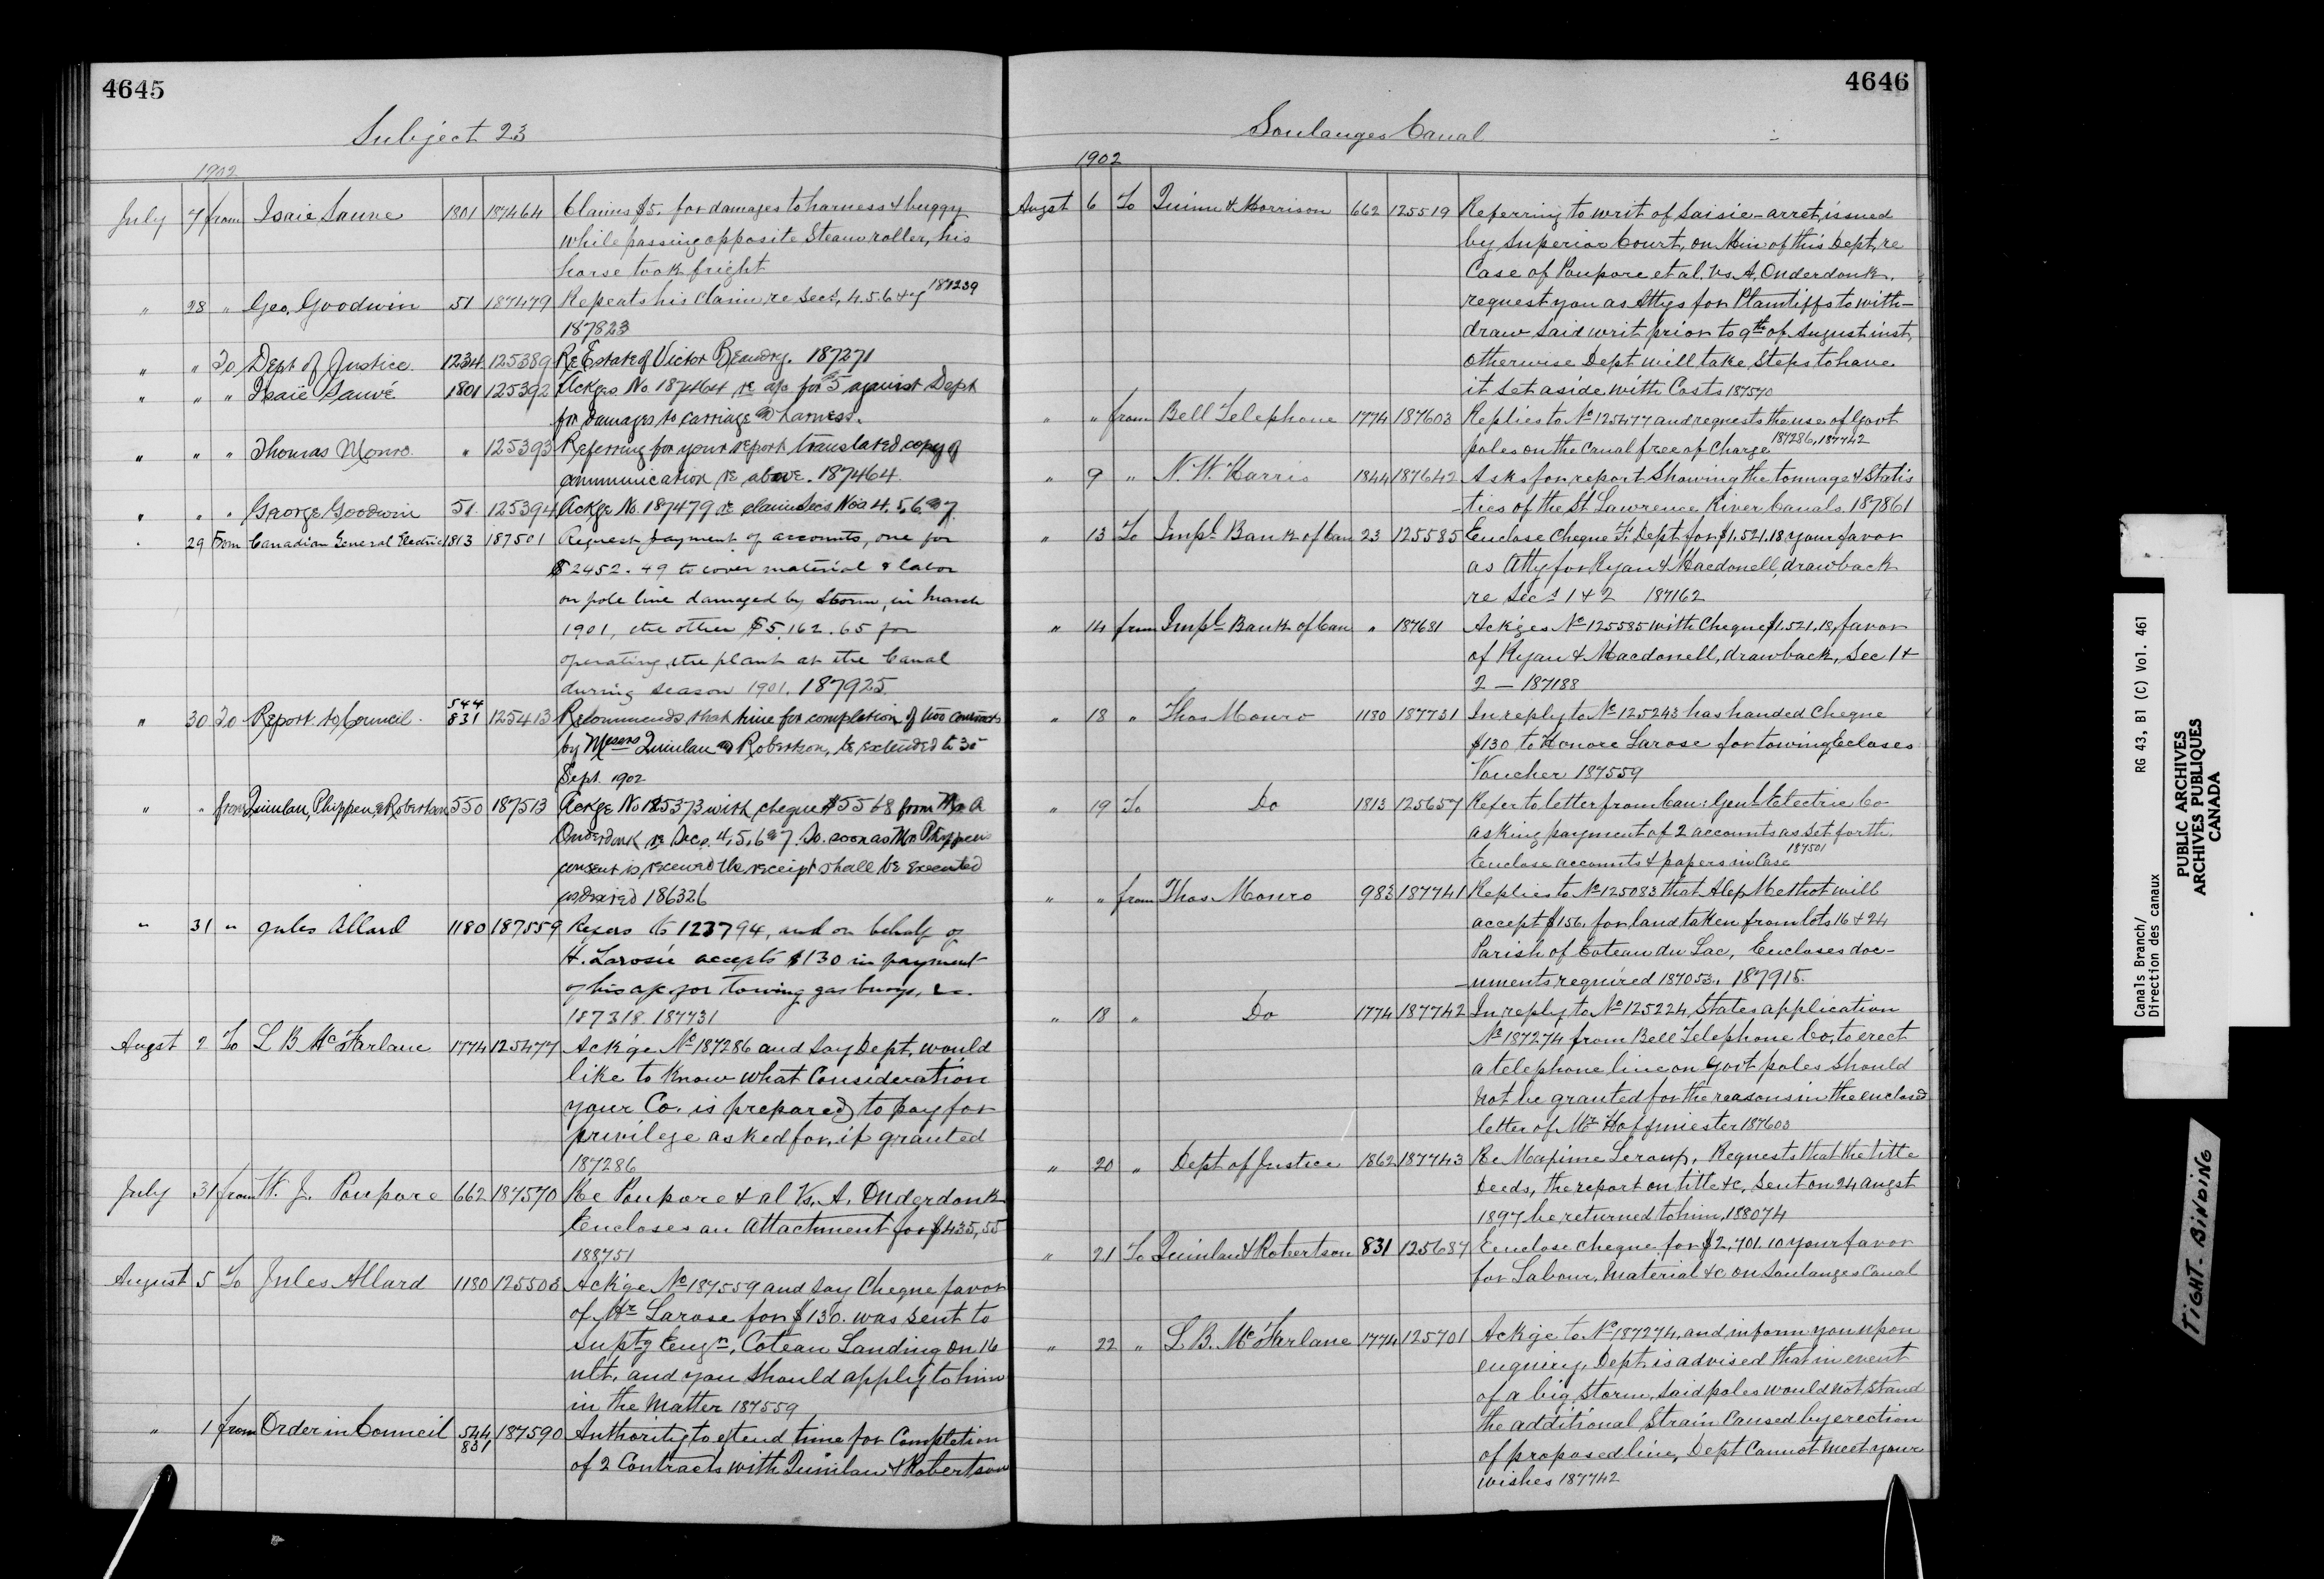 4645
Subject 23
1902
July 7 from Isaie Sauve 1801 187464 Claims $5. for damages to harness & buggy
while passing opposite Steam roller, his
horse took fright
" 28 " Geo. Goodwin 51 187479 Repeats his claim re Secs, 4.5.6 & 7 187239
187823
" " To Dept of Justice. 1234 125389 Re Estate of Victor Beaudry. 187271
" " " Isaïe Sauvé 1801 125392 Ackges No. 187464 re a/c for $5 against Dept
for damages to carriage and harness.
" " " Thomas Monro. " 125393 Referring for your report translated copy of
communication re above. 187464.
" " " George Goodwin 51 125394 Ackge No. 187479 re claim Secs Nos 4, 5, 6 and 7.
" 29 From Canadian General Electric 1813 187501 Request payment of accounts, one for
$2452.49 to cover material & labor
on pole line damaged by storm, in March
1901, the other $5,162.65 for
operating the plant at the Canal
during season 1901. 187925.
" 30 To Report to Council. 544 831 125413 Recommends that time for completion of two contracts
by Messrs Quinlan and Robertson, be extended to 30
Sept. 1902
" " from Quinlan, Phippen, & Robertson 550 187513 Ackge No 125373 with cheque $5568 from Mr A
Onderdonk re Secs. 4, 5, 6 and 7. So soon as Mr Phippen's
consent is received the receipt shall be executed
as desired 186326
" 31 " Jules Allard 1180 187559 Refers to 123794, and on behalf of
H. Larosie accepts $130 in payment
of his a/c for towing gas buoys, &c.
187318. 187731
Augst 2 To L B McFarlane 1774 125477 Ack'ge No 187286 and say Dept. would
like to know what Consideration
your Co. is prepared to pay for
privilege asked for, if granted
187286
July 31 from W. J. Poupore 662 187570 Re Poupore & al Vs. A. Onderdonk
Encloses an Attachment for $435,55
188751
August 5 To Jules Allard 1180 125503 Ack'ge No 187559 and say Cheque favor
of Mr Larose for $130. was sent to
Suptg Engr, Coteau Landing on 16
ult. and you should apply to him
in the Matter 187559
" 1 from Order in Council 544 831 187590 Authority to extend time for Completion
of 2 Contracts with Quinlan & Robertson
4646
Soulanges Canal
1902
Augst 6 To Quinn & Morrison 662 125519 Referring to writ of Saisie-arret, issued
by Superior Court, on Min of this Dept, re
Case of Poupore et al. Vs A, Onderdonk.
request you as Attys for Plaintiffs to with-
draw said writ prior to 9th of August inst,
otherwise Dept will take steps to have
it set aside with Costs 187570
" " from Bell Telephone 1774 187603 Replies to No 125477 and requests the use of Govt
poles on the Canal free of Charge 187286, 187742
" 9 " N. W. Harris 1844 187642 Asks for report Showing the tonnage & Statis
-tics of the St Lawrence River Canals. 187861
" 13 To Impl Bank of Can 23 125585 Enclose Cheque Fi Dept for $1.521.18 your favor
as Atty for Ryan & Macdonell, drawback
re Secs 1 & 2 187162
" 14 from Impl Bank of Can " 187681 Ack'ges No 125585 with Cheque $1.521.18, favor
of Ryan & Macdonell, drawback, Sec 1 &
2 — 187188
" 18 " Thos Monro 1180 187731 In reply to No 125243 has handed Cheque
$130 to Honore Larose for towing Ecloses
Voucher 187559
" 19 To Do 1813 125657 Refer to letter from Can: Genl Electric Co
asking payment of 2 accounts as set forth.
Enclose accounts & papers in Case 187501
" " from Thos Monro 983 187741 Replies to No 125083 that Alep Methot will
accept $156. for land taken from lots 16 & 24
Parish of Coteau du Lac, Encloses doc-
-uments required 187053. 187915.
" 18 " Do 1774 187742 In reply to No 125224, States application
No 187274 from Bell Telephone Co, to erect
a telephone line on Govt poles should
not be granted for the reasons in the enclosed
letter of Mr Hoffmiester 187603
" 20 " Dept of Justice 1862 187743 Re Maxime Leroux, Requests that the title
Deeds, the report on title &c, sent on 24 augst
1897 be returned to him, 188074
" 21 To Quinlan & Robertson 831 125687 Enclose cheque for $2,701.10 your favor
for Labour, Material &c on Soulanges Canal
" 22 " L B. McFarlane 1774 125701 Ack'ge to No 187274, and inform you upon
enquiry, Dept is advised that in event
of a big storm, said poles would not stand
the additional Strain Caused by erection
of proposed line, Dept Cannot meet your
wishes 187742
Canals Branch/
Direction des canaux
RG 43, B1 (C) Vol. 461
PUBLIC ARCHIVES
ARCHIVES PUBLIQUES
CANADA
TIGHT BINDING